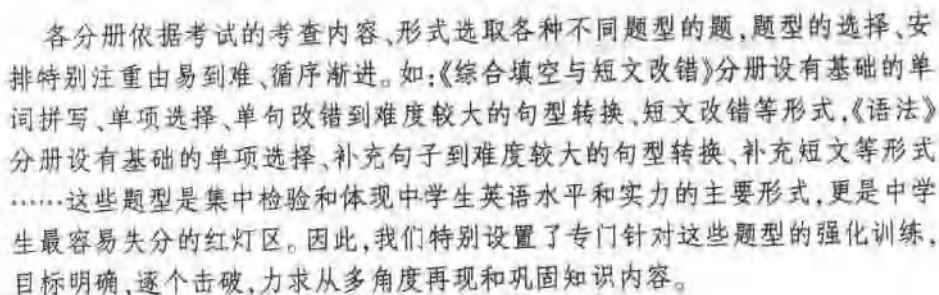 各分册依据考试的考查内容、形式选取各种不同题型的题,题型的选择、安
排特别注重由易到难、循序渐进。如:《综合填空与短文改错》分册设有基础的单
词拼写、单项选择、单句改错到难度较大的句型转换、短文改错等形式,《语法》
分册设有基础的单项选择、补充句子到难度较大的句型转换、补充短文等形式
……这些题型是集中检验和体现中学生英语水平和实力的主要形式,更是中学
生最容易失分的红灯区。因此,我们特别设置了专门针对这些题型的强化训练,
目标明确,逐个击破,力求从多角度再现和巩固知识内容。